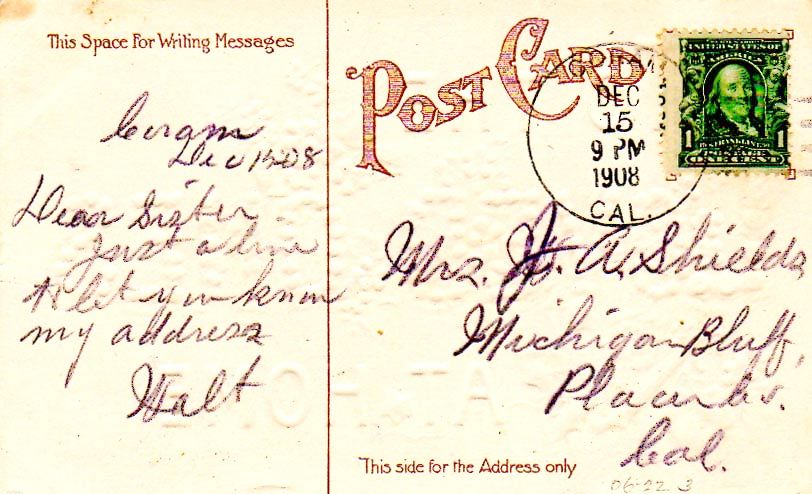 This Space For Writing Messages
Coram
Dec 15-08
Dear Sister
Just a line
to let you know
my address
Walt
POST CARD
DEC
15
9 PM
1908
CAL.
UNITED STATES OF
AMERICA
1 1
Mrs. J. A. Shields
Michigan Bluff,
Placer Co.
Cal.
This side for the Address only
06-22 3